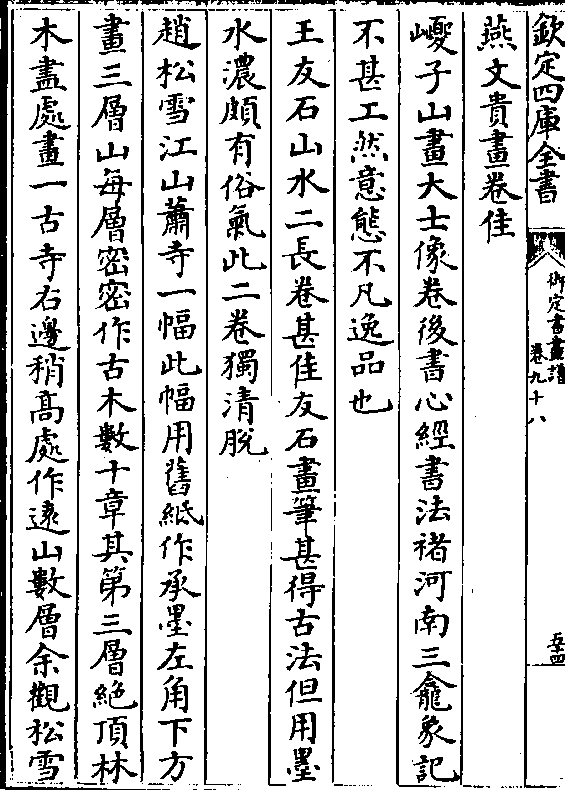 欽定四庫全書
御定書畫譜
卷九十八
五十四
燕文貴畫卷佳
巙子山畫大士像卷後書心經書法褚河南三龕象記
不甚工然意態不凡逸品也
王友石山水二長卷甚佳友石畫筆甚得古法但用墨
水濃頗有俗氣此二卷獨清脫
趙松雪江山蕭寺一幅此幅用舊紙作承墨左角下方
畫三層山每層密密作古木數十章其第三層絕頂林
木盡處畫一古寺右邊稍高處作遠山數層余觀松雪